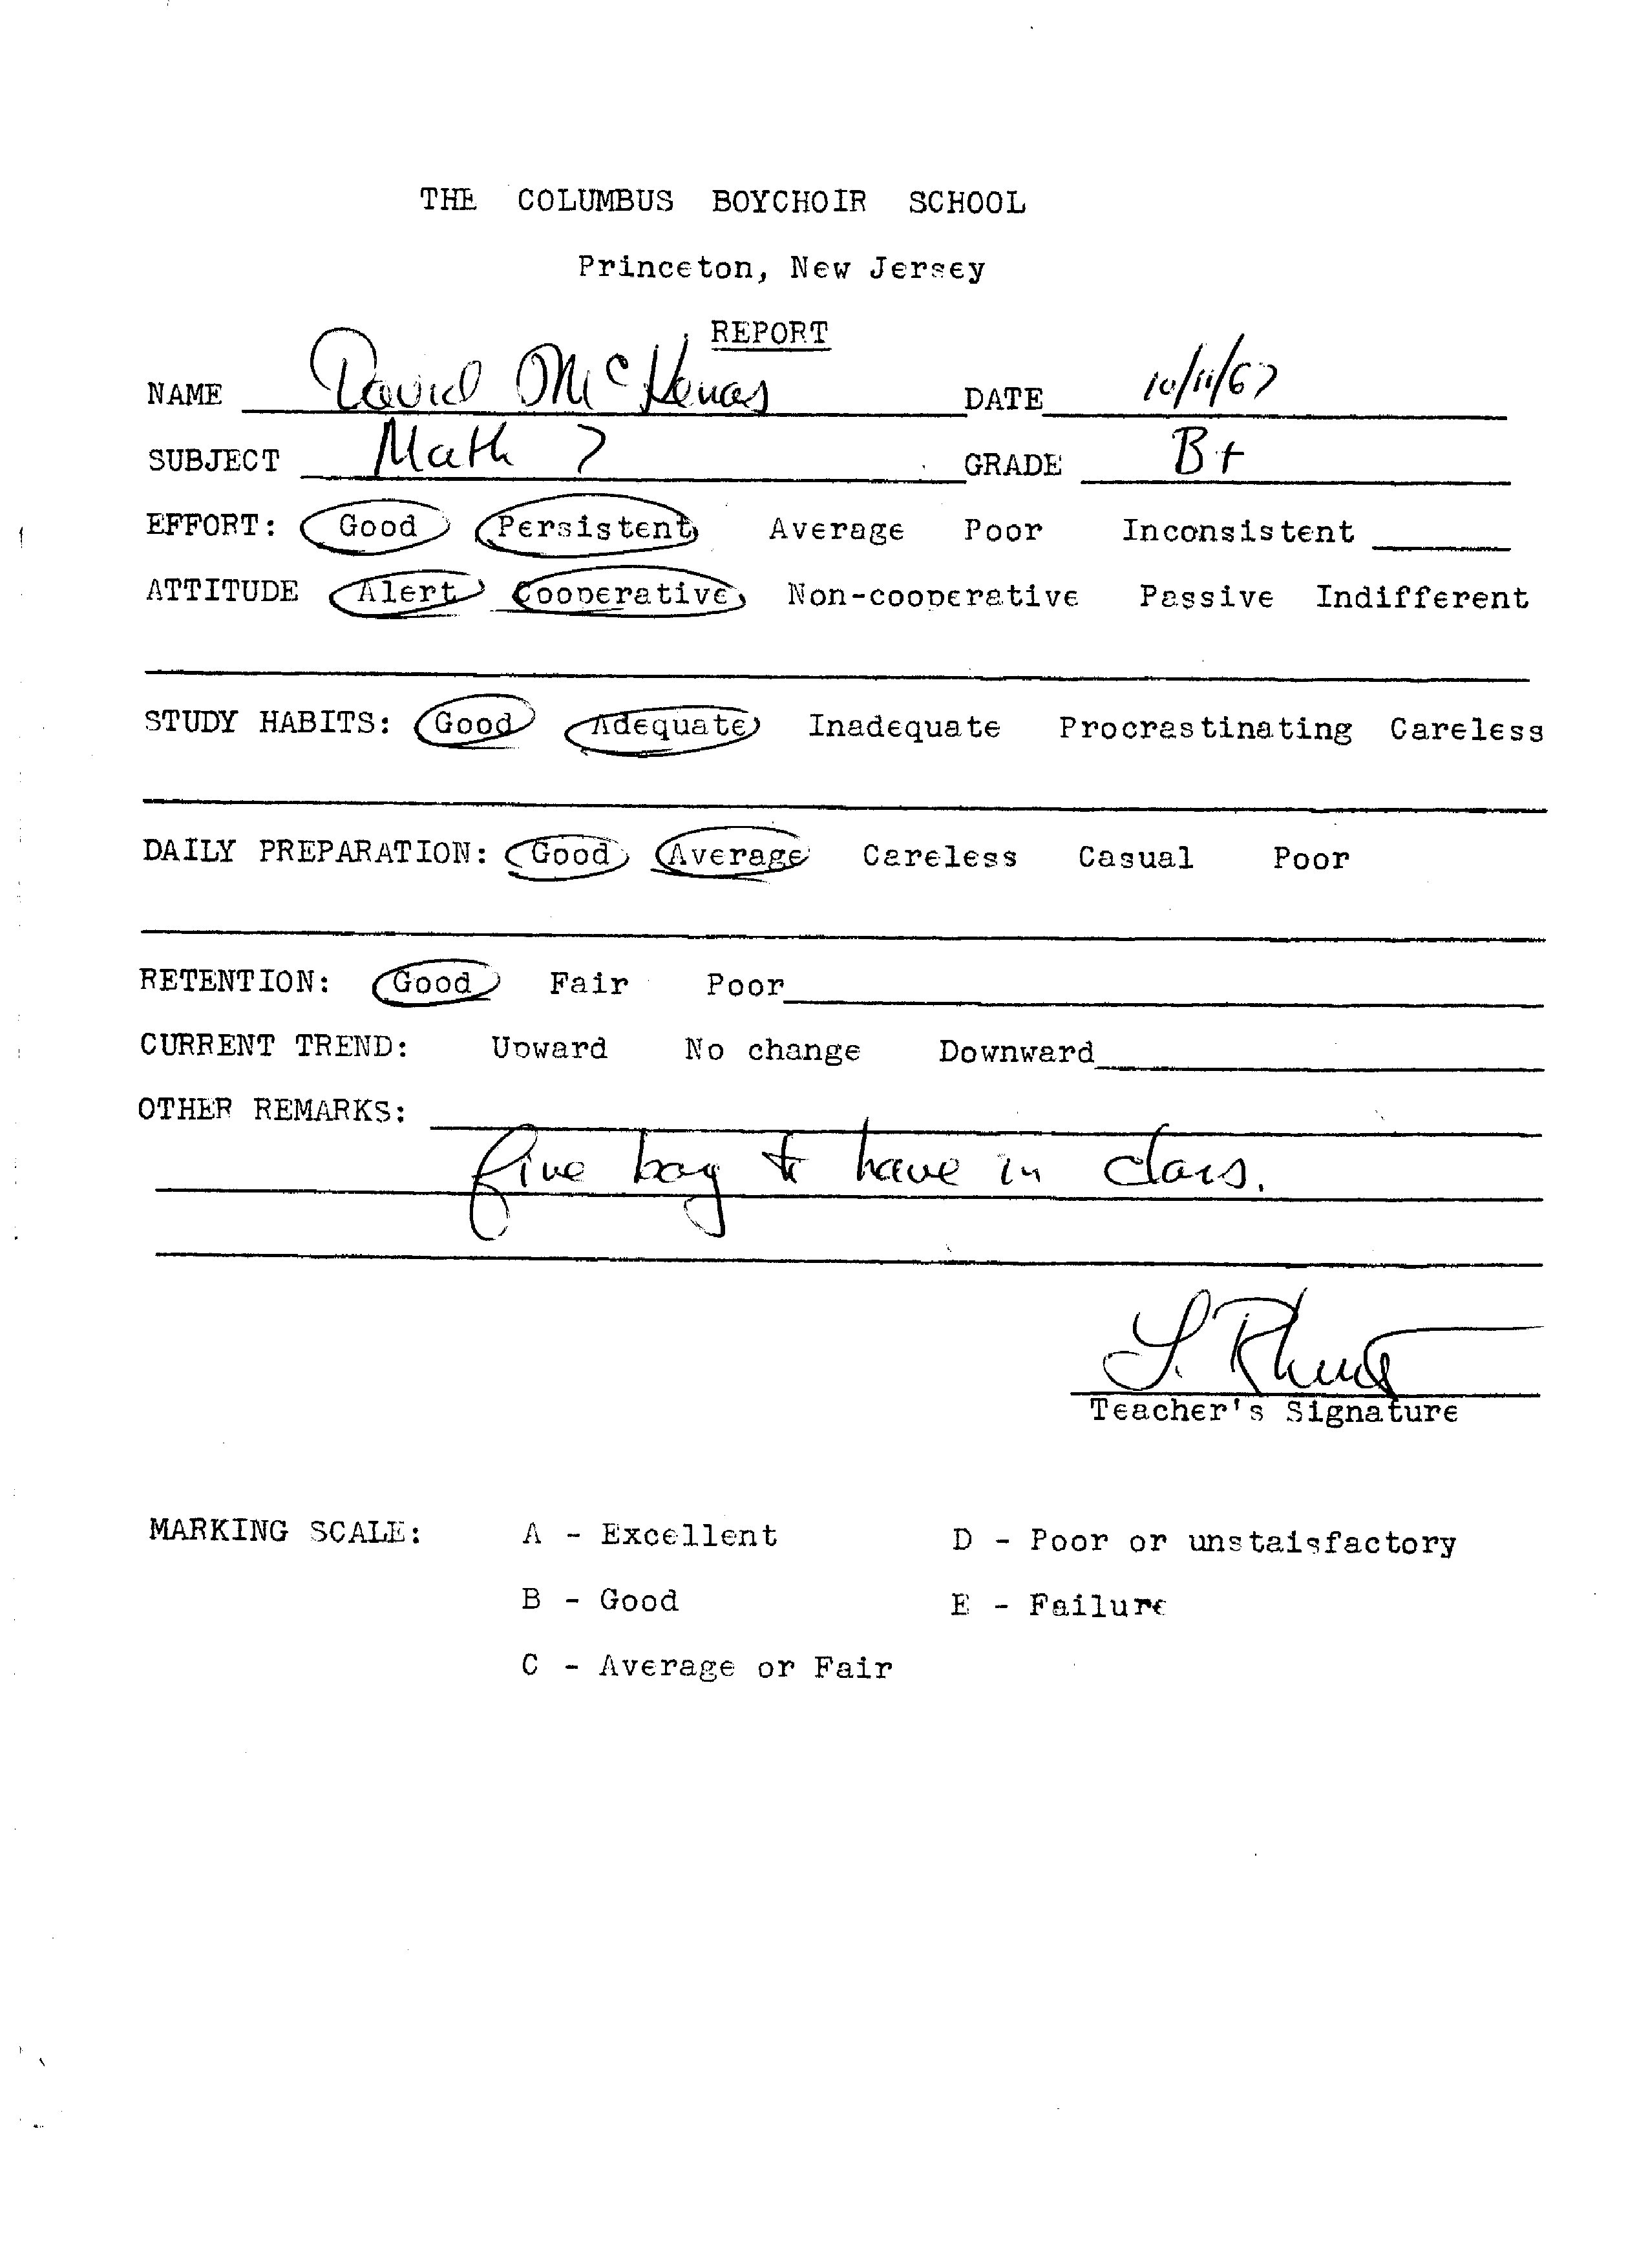 THE COLUMBUS BOYCHOIR SCHOOL
Princeton, New Jersey
REPORT
NAME David McHenas DATE 10/11/67
SUBJECT Math 7 GRADE B+
EFFORT: Good Persistent Average Poor Inconsistent
ATTITUDE Alert Cooperative Non-cooperative Passive Indifferent
STUDY HABITS: Good Adequate Inadequate Procrastinating Careless
DAILY PREPARATION: Good Average Careless Casual Poor
RETENTION: Good Fair Poor
CURRENT TREND: Upward No change Downward
OTHER REMARKS:
fine boy to have in class.
Teacher's Signature
MARKING SCALE: A - Excellent D - Poor or unstaisfactory
B - Good E - Failure
C - Average or Fair